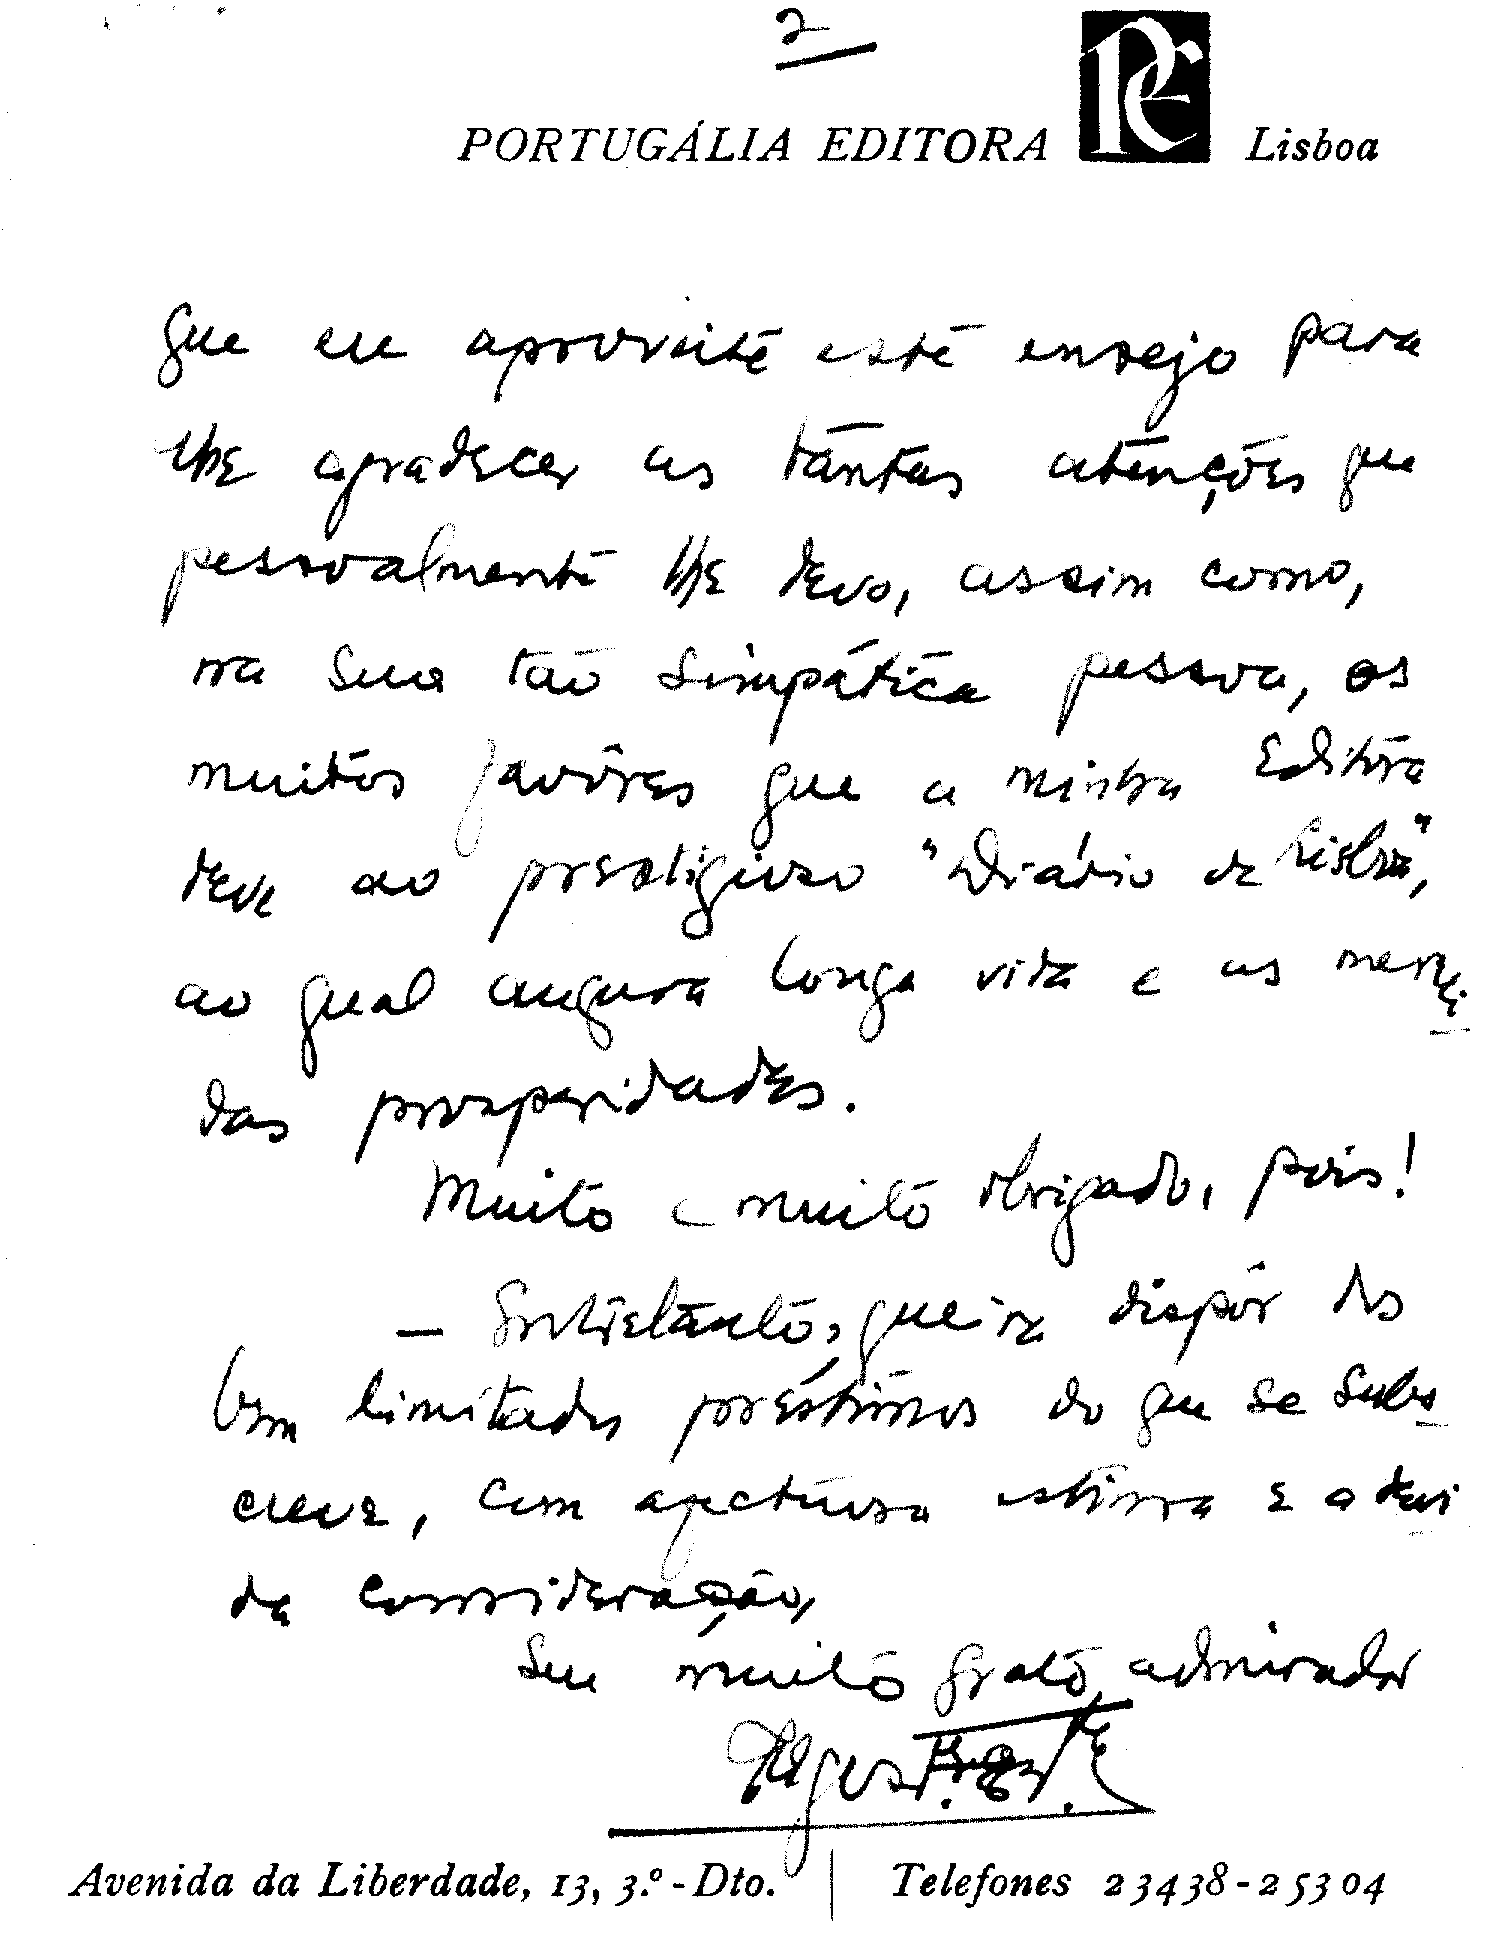 2
PORTUGÁLIA EDITORA PE Lisboa
que eu aproveite este ensejo para
lhe agradecer as tantas atenções que
pessoalmente lhe devo, assim como,
na sua tão simpática pessoa, os
muitos favôres que a minha Editora
deve ao prestigioso "Diário de Lisboa",
ao qual augura longa vida e as mereci
das prosperidades.
Muito e muito obrigado, pois!
— Entretanto, queira dispôr dos
bem limitados préstimos do que se subs
creve, com afectuosa estima e a devi
da consideração,
Seu muito grato admirador
Avenida da Liberdade, 13, 3.º-Dto. | Telefones 23438-25304